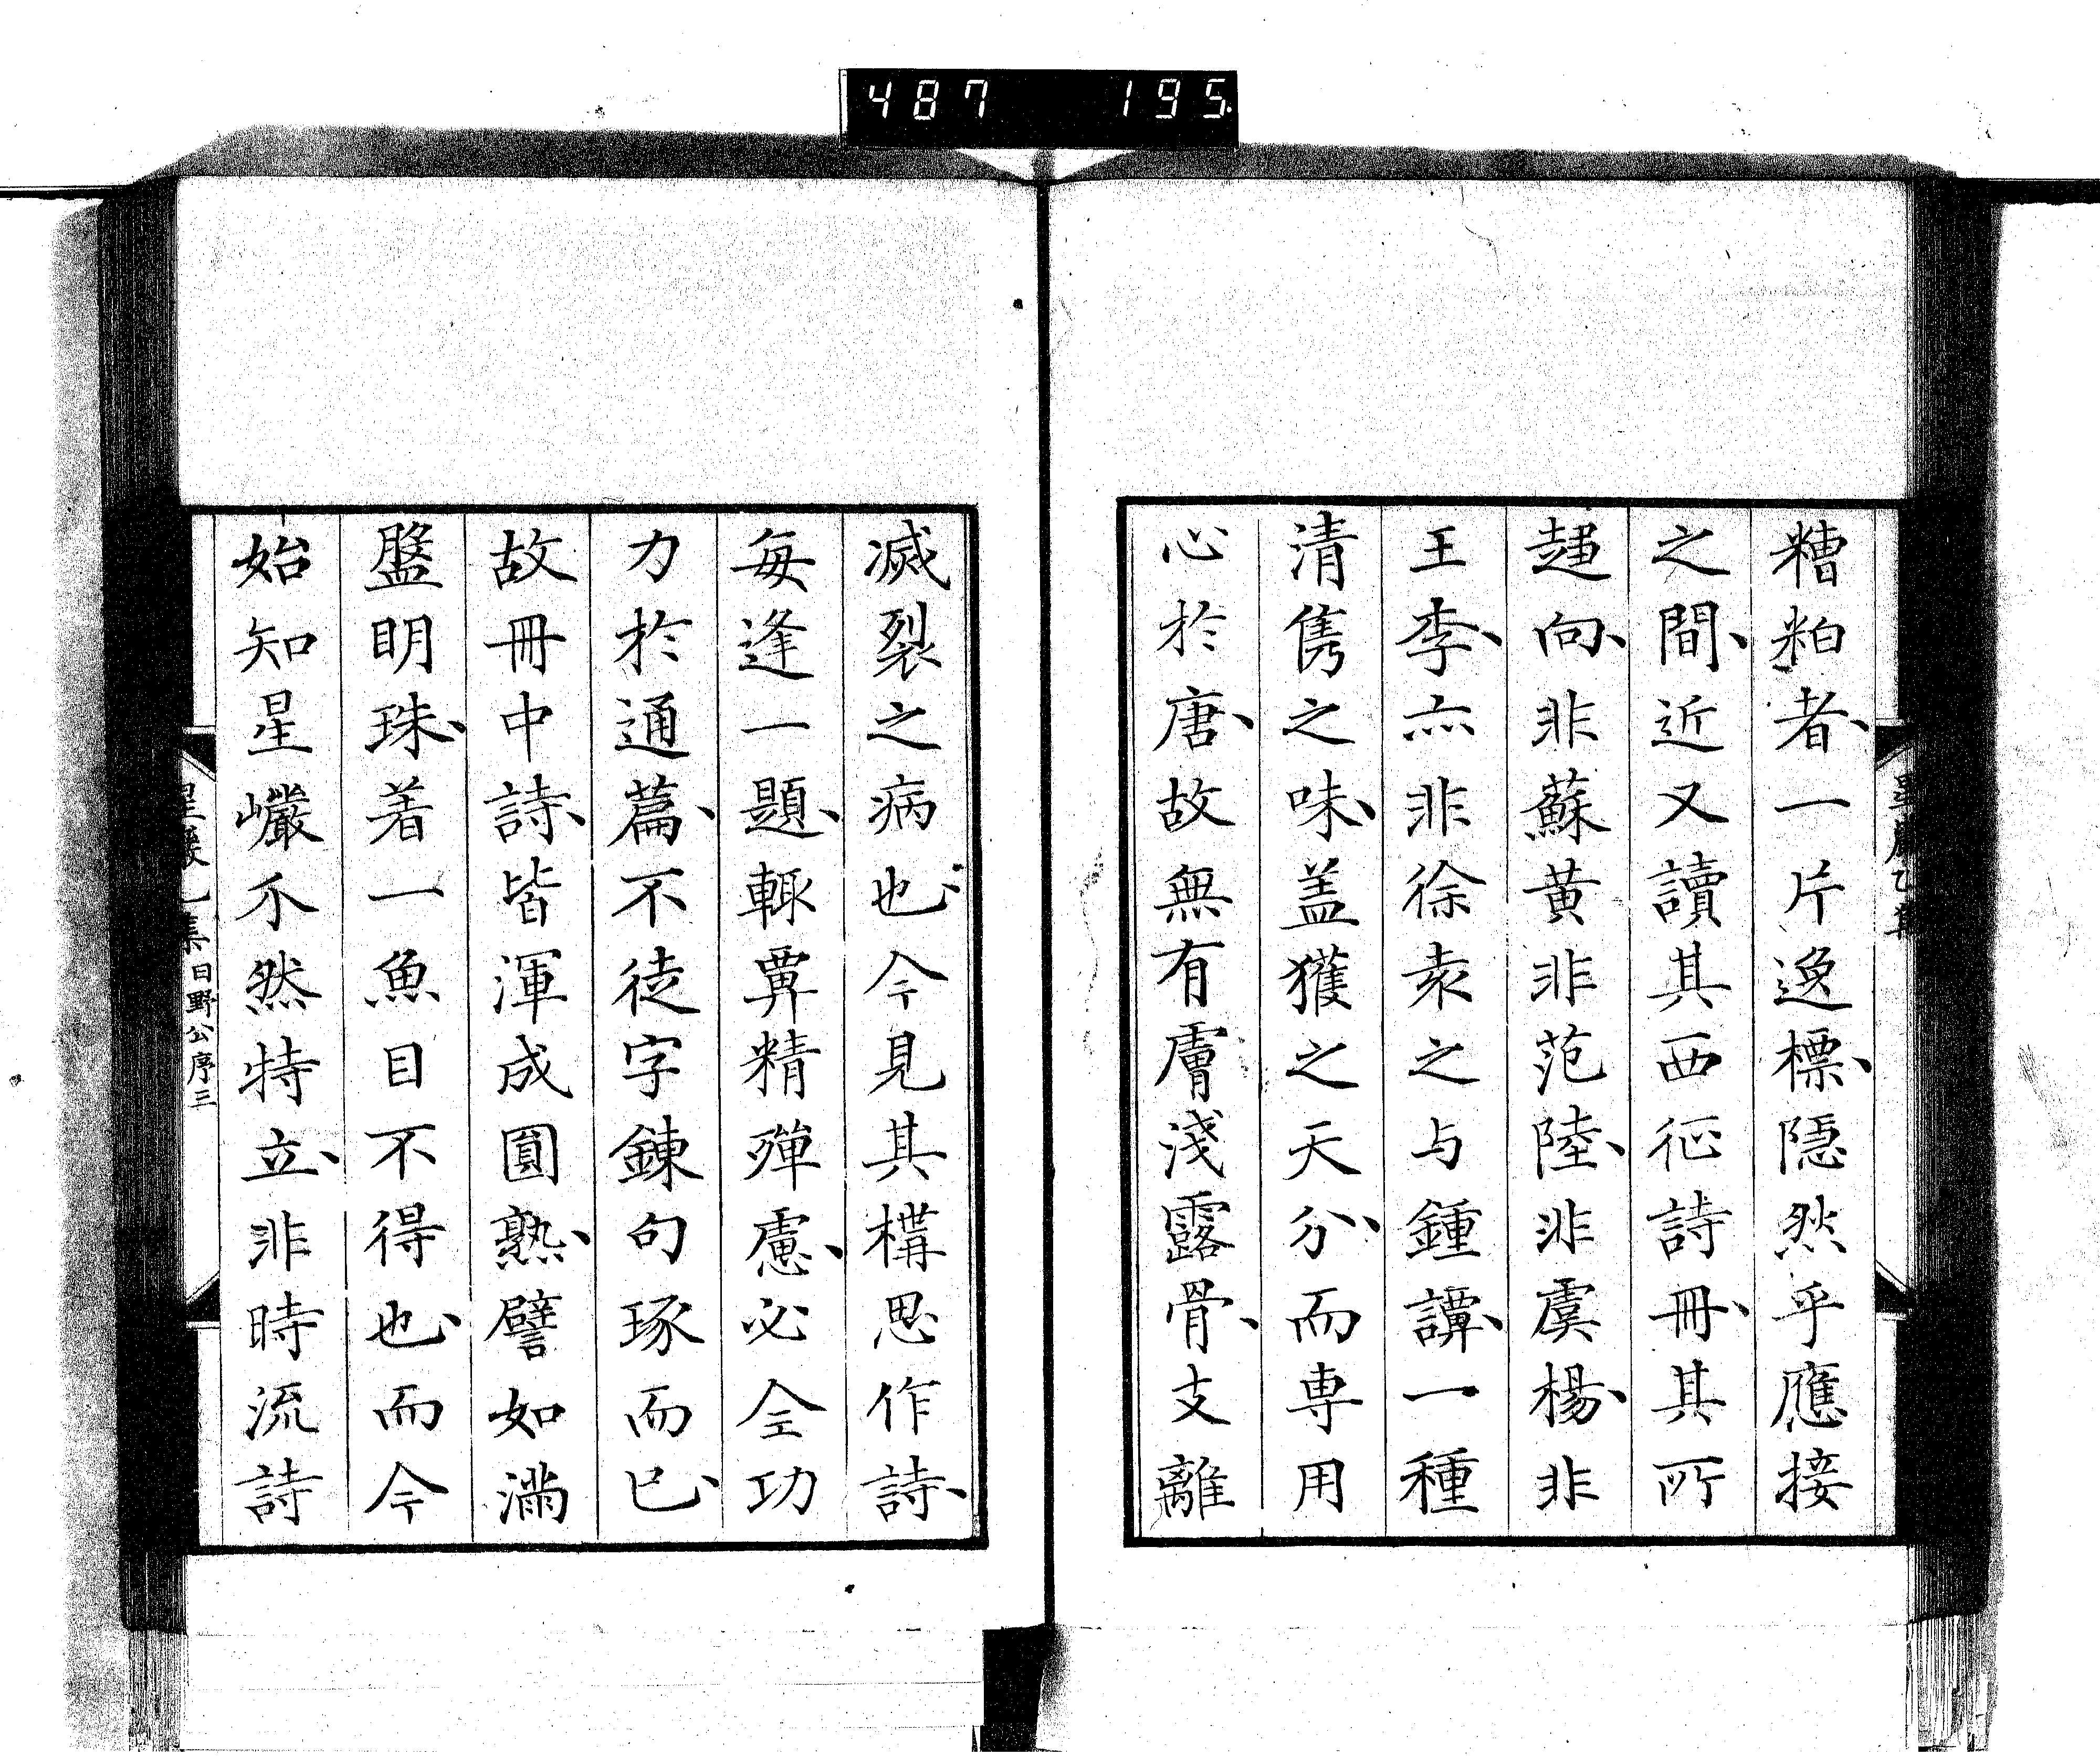 487 195
糟粕者、一片逸標、隠然乎應接
之間、近又讀其西征詩冊、其所
趨向、非蘇黄非范陸、非虞楊、非
王李、亦非徐袁之与鍾譚、一種
清雋之味、盖獲之天分、而専用
心於唐、故無有膚淺露骨、支離
滅裂之病也、今見其構思作詩、
每逢一題、輙覃精殫慮、必全功
力於通篇、不徒字錬句琢而已、
故冊中詩、皆渾成圓熟、譬如滿
盤明珠、着一魚目不得也、而今
始知星巗介然特立、非時流詩
日野公序三